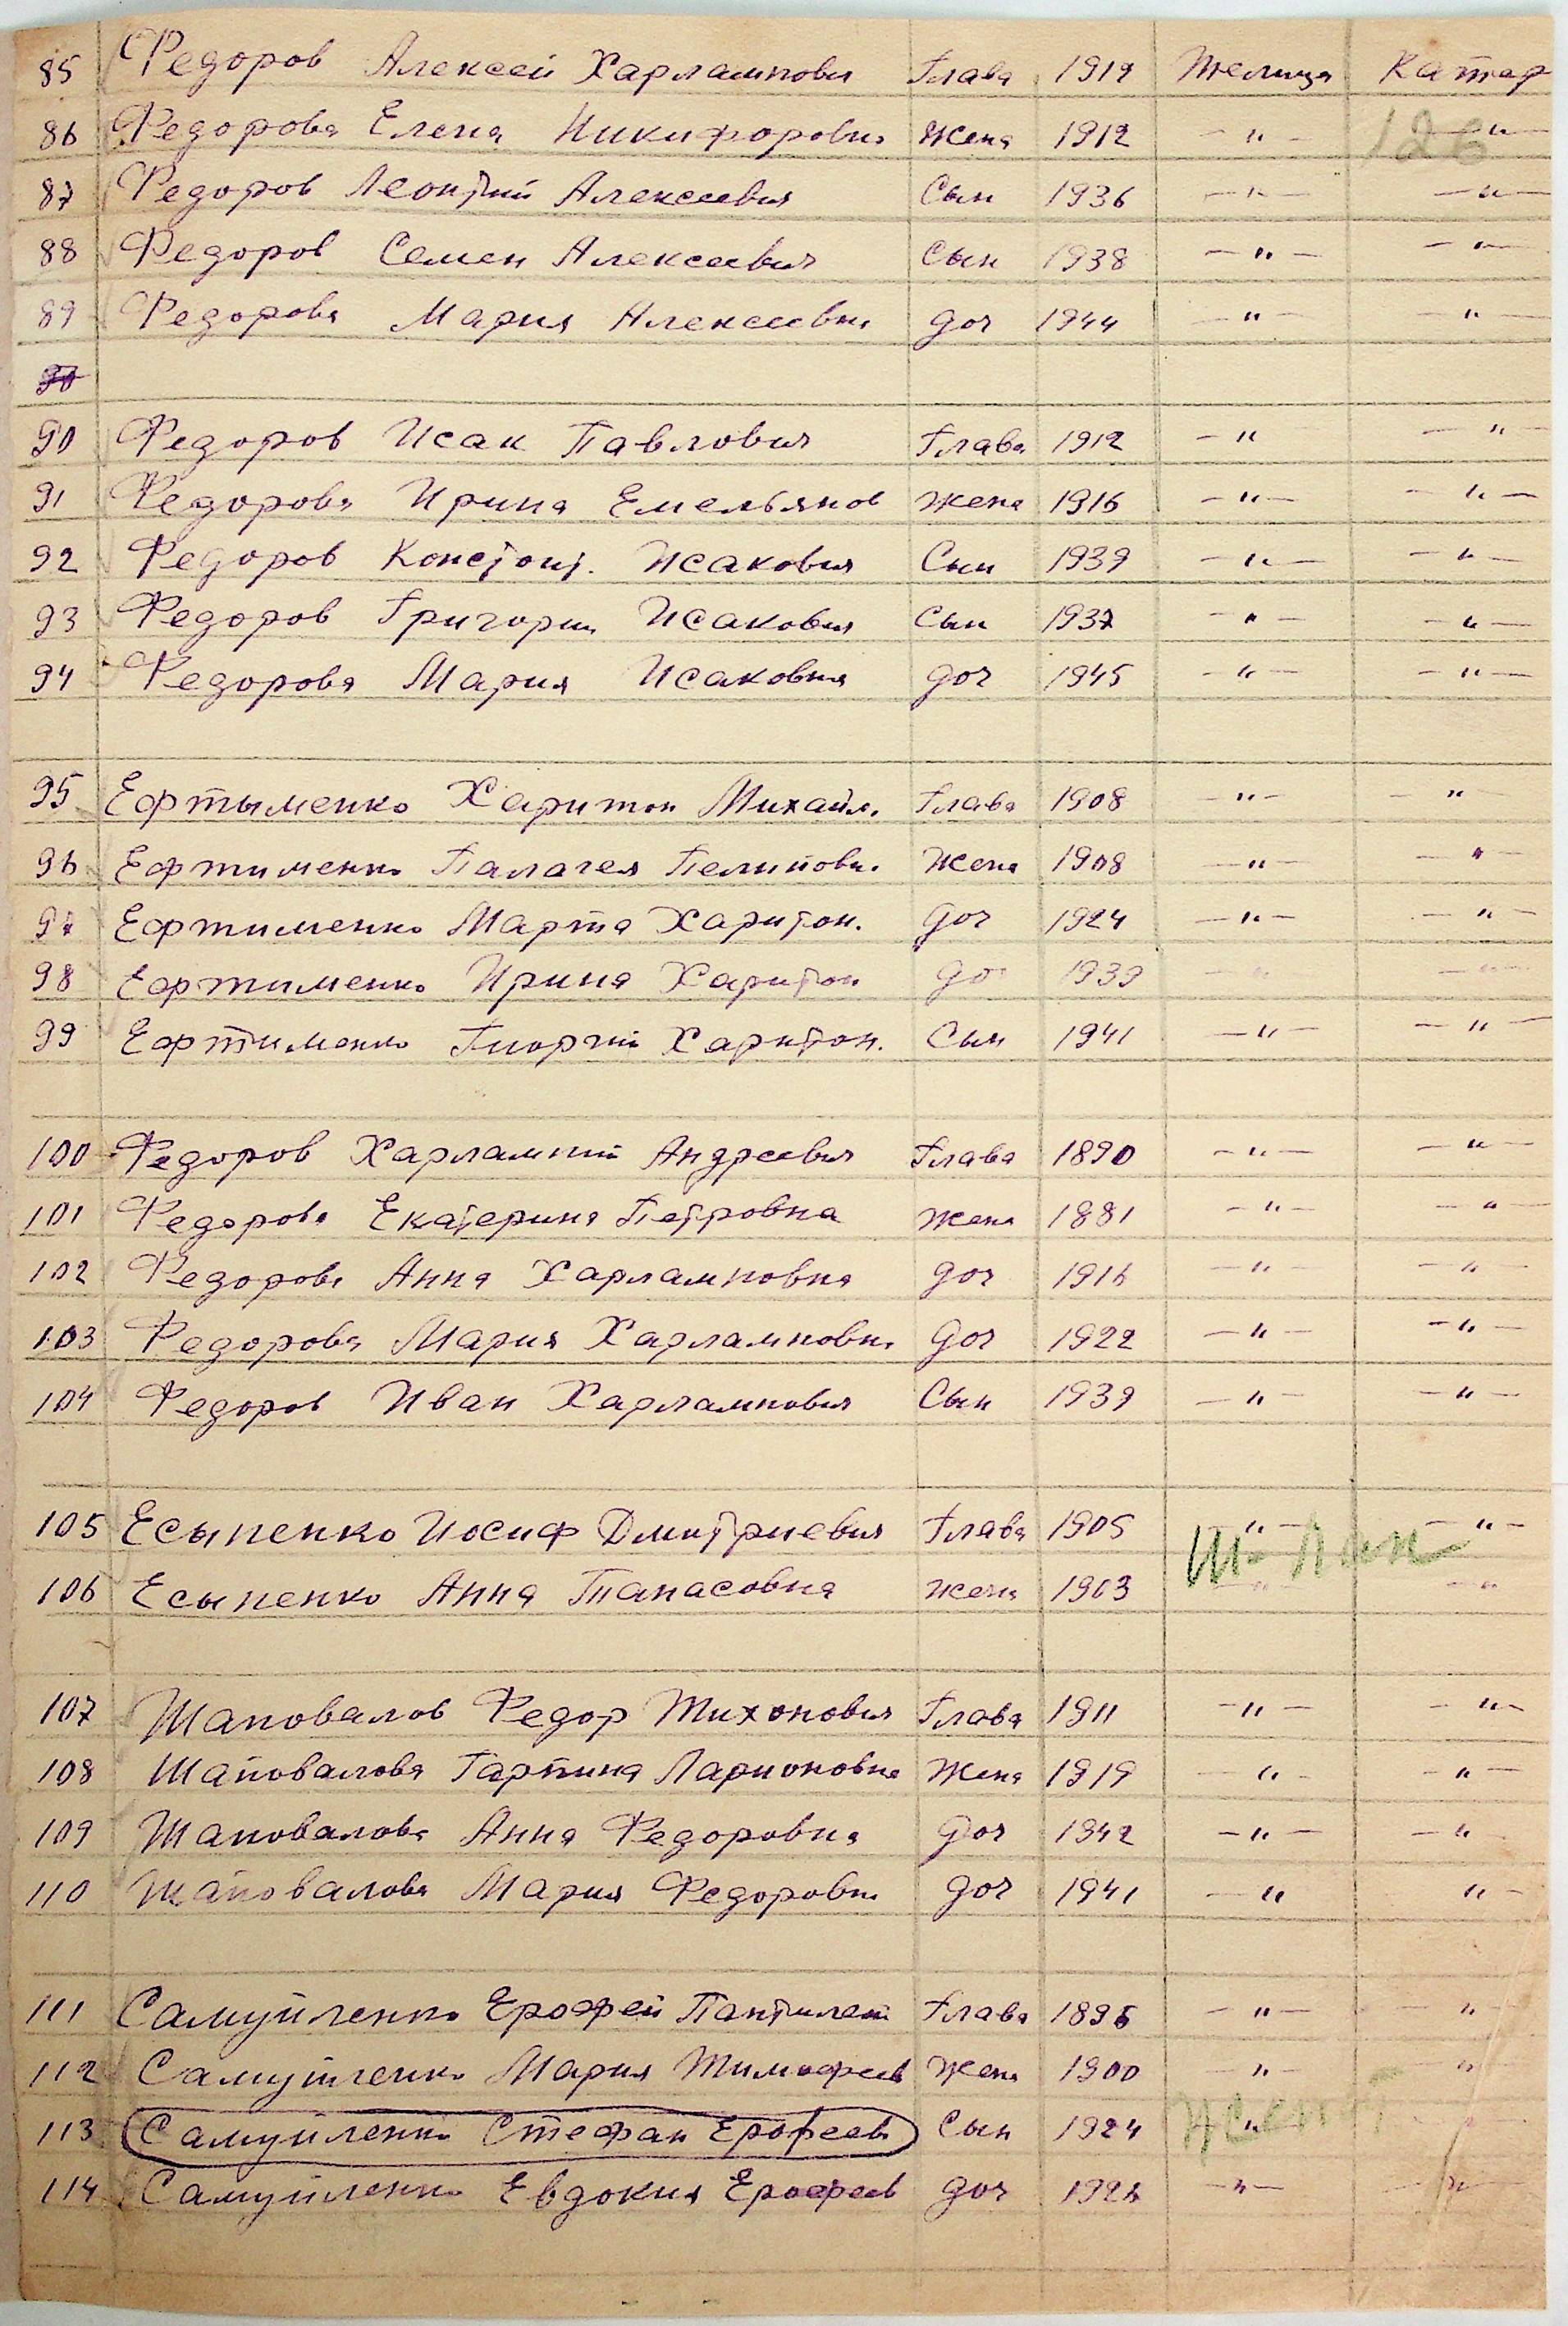 85 Федоров Алексей Харлампович Глава 1912 Желица Катар
126
86 Федорова Елена Никифоровна Жена 1912 — " — — " —
87 Федоров Леонтий Алексеевич Сын 1936 — " — — " —
88 Федоров Семен Алексеевич Сын 1938 — " — — " —
89 Федорова Мария Алексеевна доч 1944 — " — — " —
90
90 Федоров Исак Павлович Глава 1912 — " — " —
91 Федорова Ирина Емельянов Жена 1916 — " — — " —
92 Федоров Констант. Исакович Сын 1939 — " — — " —
93 Федоров Григорий Исакович Сын 1937 — " — — " —
94 Федорова Мария Исаковна доч 1945 — " — — " —
95 Ефтыменко Харитон Михайл. Глава 1908 — " — — " —
96 Ефтименко Палагея Пелиповн. Жена 1908 — " — — " —
97 Ефтименко Марта Харитон. доч 1924 — " — — " —
98 Ефтименко Ирина Харитон до 1939 — " — — " —
99 Ефтименко Гиоргий Харитон. Сын 1941 — " — — " —
100 Федоров Харлампий Андреевич Глава 1890 — " — — " —
101 Федорова Екатерина Петровна Жена 1881 — " — — " —
102 Федорова Анна Харламповна доч 1916 — " — — " —
103 Федорова Мария Харламповна доч 1922 — " — — " —
104 Федоров Иван Харлампович Сын 1939 — " — — " —
105 Есыпенко Иосиф Дмитриевич Глава 1905 — " — — " —
106 Есыпенко Анна Танасовна Жена 1903 — " — — " —
107 Шаповалов Федор Тихонович Глава 1911 — " — — " —
108 Шаповалова Гарпина Ларионовна Жена 1919 — " — — " —
109 Шаповалова Анна Федоровна Доч 1942 — " — — " —
110 Шаповалова Мария Федоровн. доч 1941 — " — " —
111 Самуйленко Ерофей Пантилей Глава 1896 — " — — " —
112 Самуйленко Мария Тимофеев Жена 1900 — " — "
113 Самуйленко Стефан Ерофеев Сын 1924 "
114 Самуйленко Евдокия Ерофеев доч 1926 — " — — " —